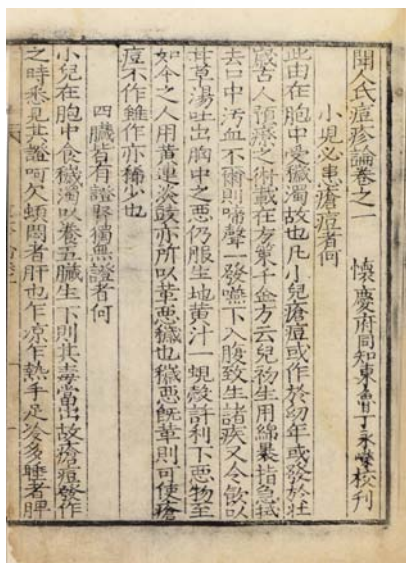 聞人氏痘疹論卷之一
懷慶府同知東魯丁永𡺽校刊
小兒必患瘡痘者何
此由在胞中受穢濁故也凡小兒瘡痘或作於幼年或發於壯
歲古人預療之術載在方策千金方云兒初生用綿裹指急拭
去口中汚血不爾則啼聲一發嚥下入腹致生諸疾又令飲以
甘草湯吐出胸中之惡仍服生地黃汁一蜆殼許利下惡物至
如今之人用黃連淡豉亦所以革惡穢也穢惡旣革則可使瘡
痘不作雖作亦稀少也
四臟皆有證腎獨無證者何
小兒在胞中食穢濁以養五臟生下則其毒當出故瘡痘發作
之時悉見其證呵欠頓悶者肝也乍凉乍熱手足冷多睡者脾